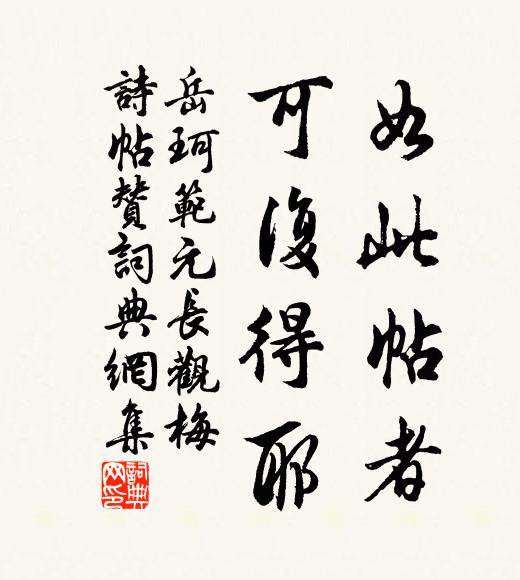 如此帖者
可復得耶
岳珂範元長觀梅
詩帖贊詞典網集